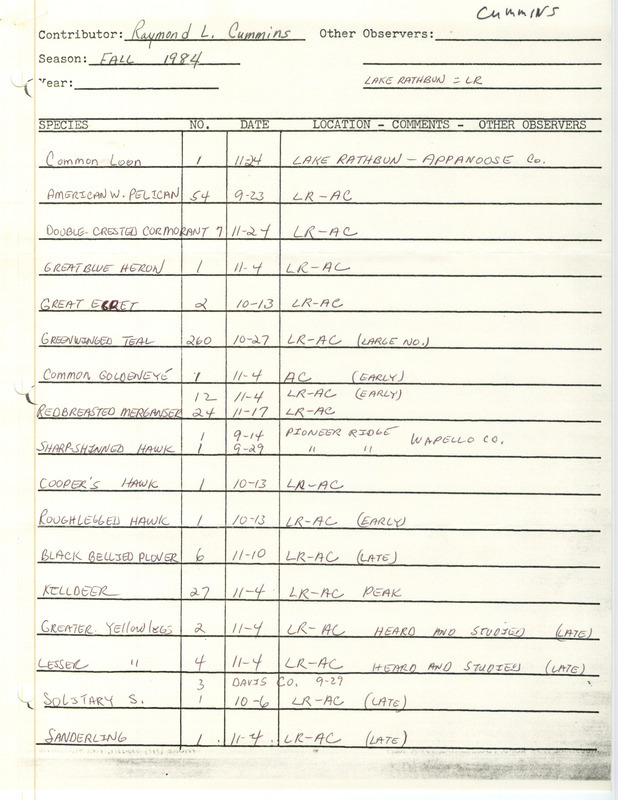 Cummins
Contributor: Raymond L. Cummins Other Observers:
Season: FALL 1984
Year: LAKE RATHBUN = LR
SPECIES NO. DATE LOCATION - COMMENTS - OTHER OBSERVERS
Common Loon 1 11-24 LAKE RATHBUN - APPANOOSE Co.
AMERICAN W. PELICAN 54 9-23 LR-AC
DOUBLE-CRESTED CORMORANT 7 11-24 LR-AC
GREAT BLUE HERON 1 11-4 LR-AC
GREAT EGRET 2 10-13 LR-AC
GREENWINGED TEAL 260 10-27 LR-AC (LARGE NO.)
COMMON GOLDENEYE 1 11-4 AC (EARLY)
12 11-4 LR-AC (EARLY)
REDBREASTED MERGANSER 24 11-17 LR-AC
1 9-14 PIONEER RIDGE WAPELLO CO.
SHARP-SHINNED HAWK 1 9-29 " "
COOPER'S HAWK 1 10-13 LR-AC
ROUGHLEGGED HAWK 1 10-13 LR-AC (EARLY)
BLACK BELLIED PLOVER 6 11-10 LR-AC (LATE)
KILLDEER 27 11-4 LR-AC PEAK
GREATER YellowlEGS 2 11-4 LR-AC HEARD AND STUDIED (LATE)
LESSER " 4 11-4 LR-AC HEARD AND STUDIED (LATE)
3 DAVIS CO. 9-29
SOLITARY S. 1 10-6 LR-AC (LATE)
SANDERLING 1 11-4 LR-AC (LATE)